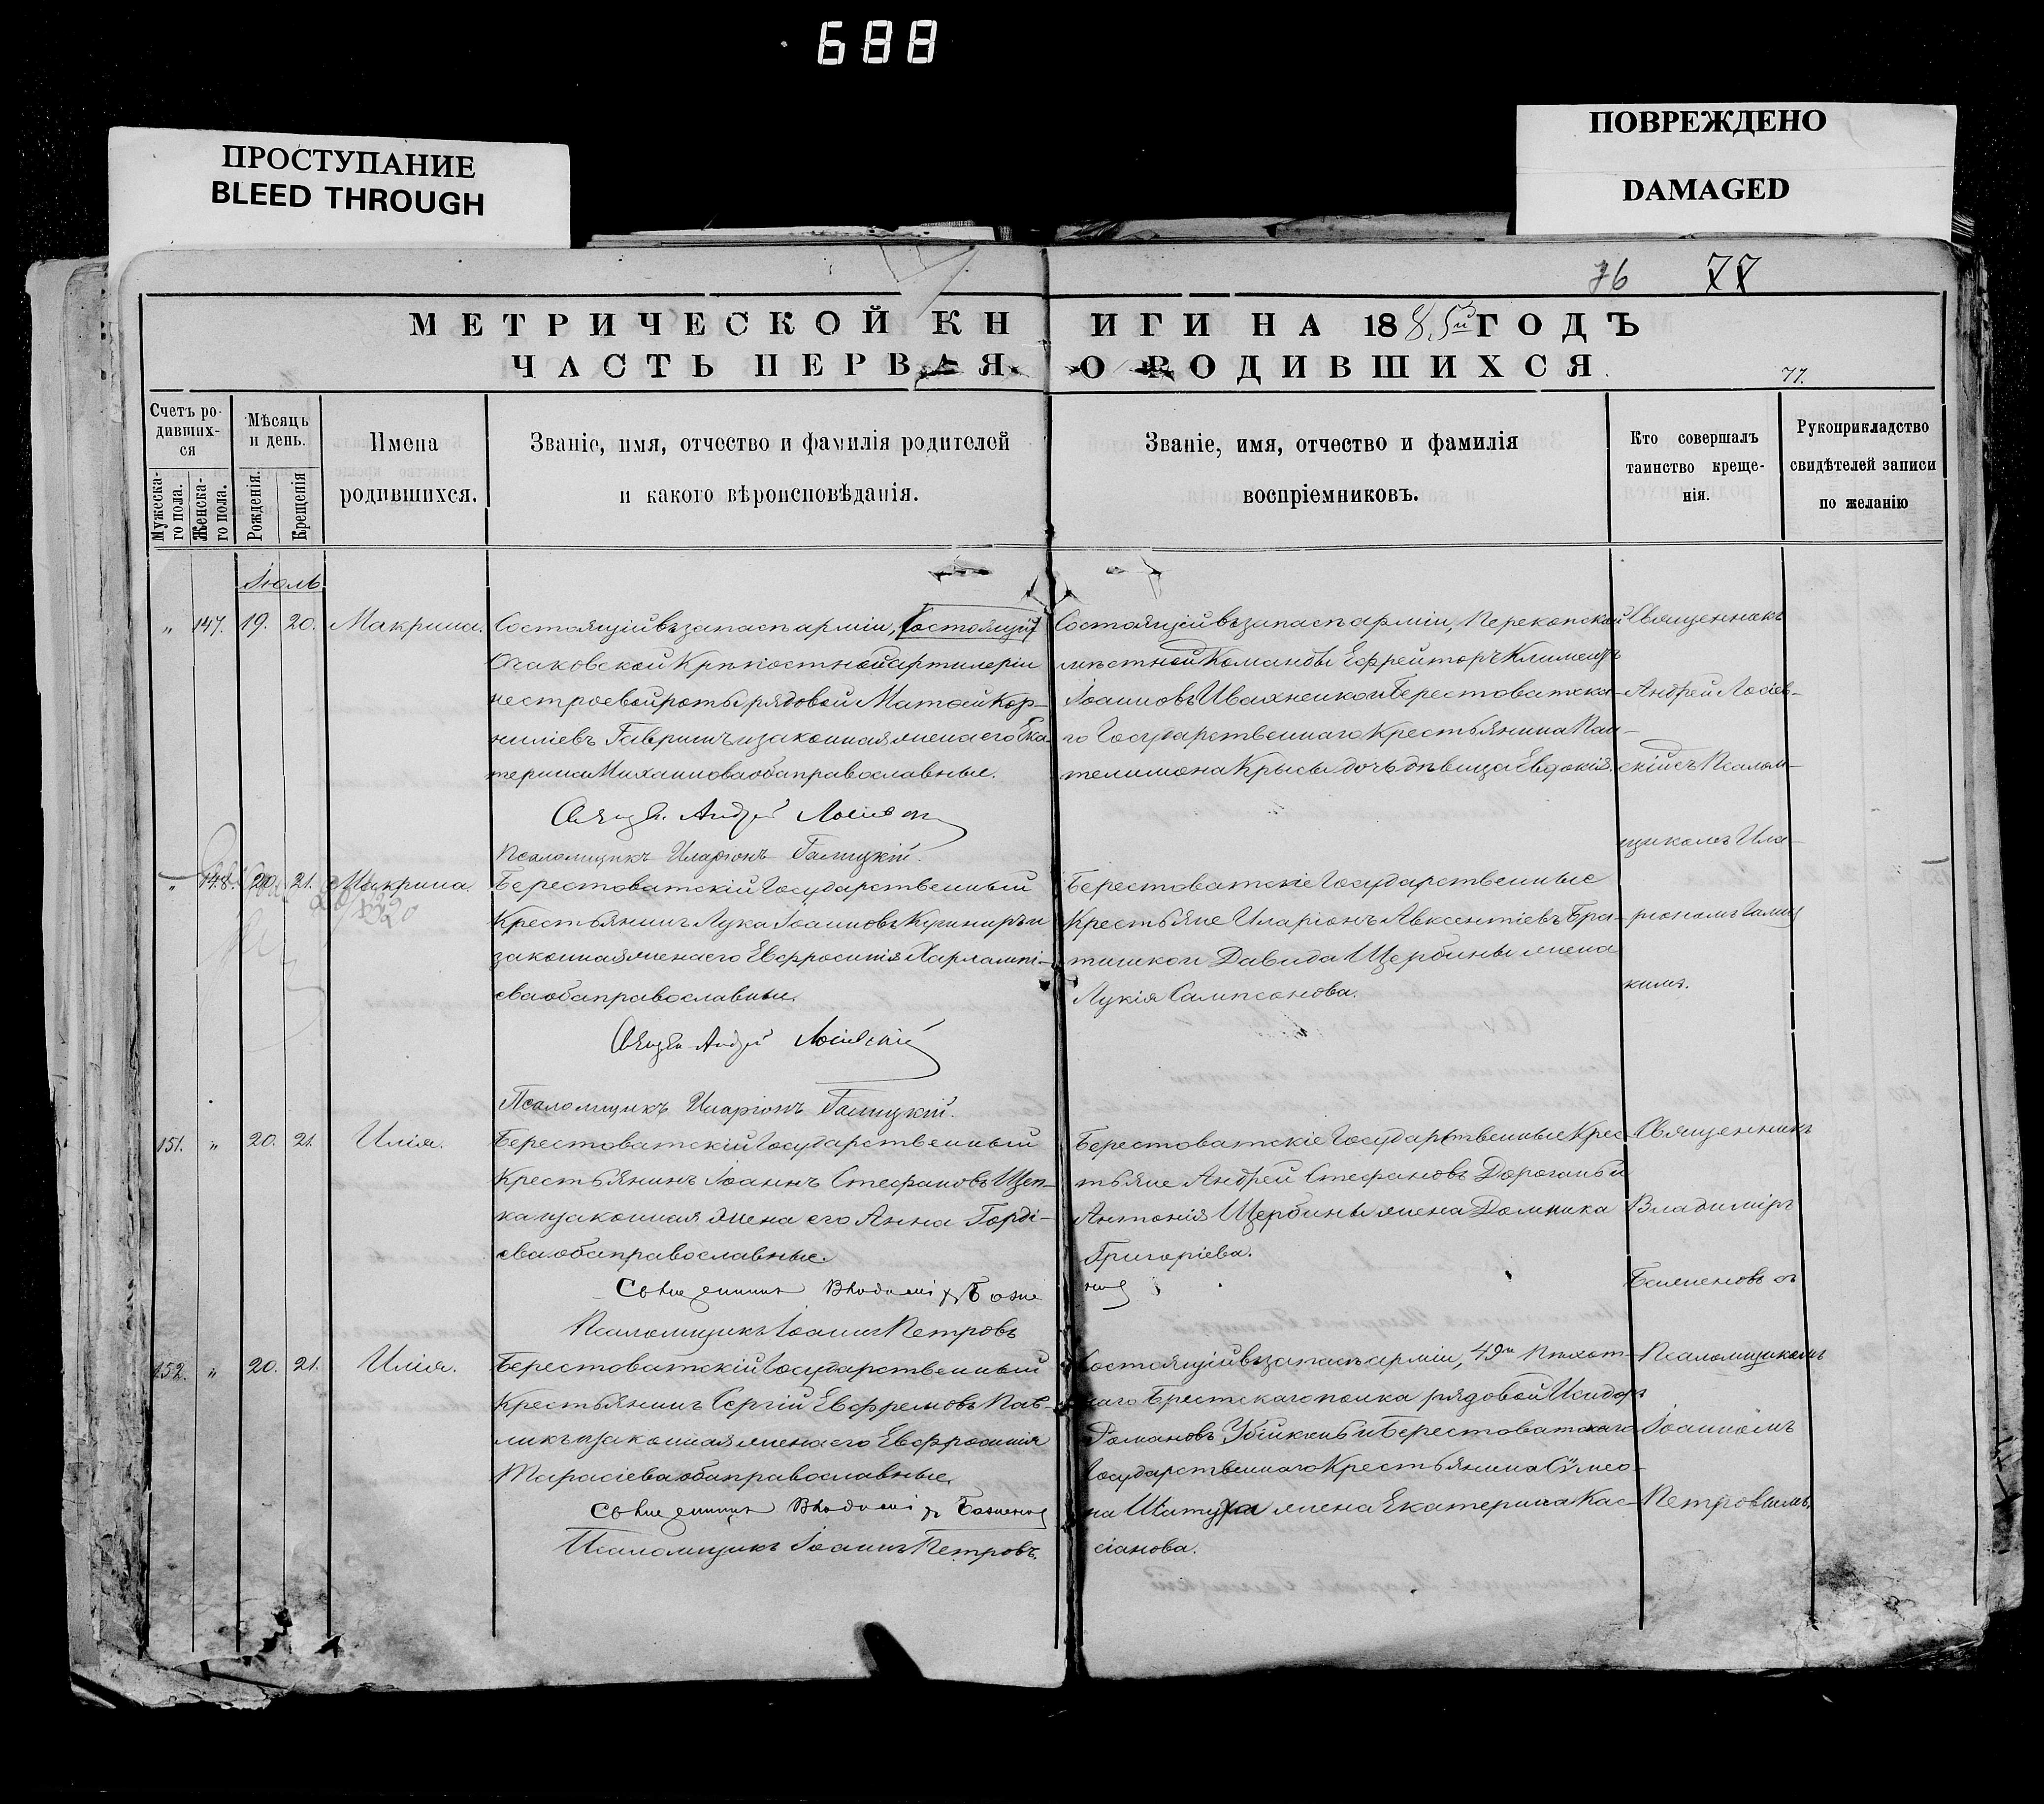 688
ПРОСТУПАНИЕ
BLEED THROUGH
ПОВРЕЖДЕНО
DAMAGED
76 77
МЕТРИЧЕСКОЙ КНИГИ НА 1885й ГОДЪ
ЧАСТЬ ПЕРВАЯ О РОДИВШИХСЯ.
77.
Счетъ ро-
дивших-
ся
Мужеска-
го пола.
Женска-
го пола.
Мѣсяцъ
и день.
Рожденія.
Крещенія
Имена
родившихся.
Званіе, имя, отчество и фамилія родителей
и какого вѣроисповѣданія.
Званіе, имя, отчество и фамилія
воспріемниковъ.
Кто совершалъ
таинство креще-
нія.
Рукоприкладство
свидѣтелей записи
по желанію
Іюль
„ 147. 19. 20. Макрина.
Состоящій въ запасѣ арміи, Состоящій
Очаковской Крѣпостной артилеріи
нестроевой роты рядовой Матѳій Кор-
ниліевъ Гавришъ и законная жена его Ека-
терина Михаилова оба православные.
Священ. Андрей
Псаломщикъ Иларіонъ Галицкій.
Состоящій въ запасѣ арміи, Перекопской
мѣстной Команды Ефрейторъ Климентъ
Іоанновъ Иваненко и Берестоватска-
го Государственнаго Крестьянина Пан-
телимона Крысы дочь дѣвица Евдокія.
Священникъ
Андрей Лосіев-
скій съ Псалом-
щикомъ Ила-
ріономъ Галиц
кимъ.
„ 148. 20. 21. Макрина
Берестоватскій Государственный
Крестьянинъ Лука Іоанновъ и
законная жена его Евфросинія Харлампі-
ева оба православные.
Священ Андрей Лосіевскій
Псаломщикъ Иларіонъ Галицкій.
Берестоватскіе Государственные
Крестьяне Иларіонъ Авксентіевъ Бра-
тишко и Давида Щербины жена
Лукія Сампсонова.
151. „ 20. 21. Илія.
Берестоватскій Государственный
Крестьянинъ Іоаннъ Стефановъ Щеп-
ка и законная жена его Анна Горді-
ева оба православные.
Псаломщикъ Іоаннъ Петровъ
Берестоватскіе Государственные Крес-
тьяне Андрей Стефановъ Дорогань и
Антонія Щербины жена Домника
Григоріева.
Священникъ
Владиміръ
Баженовъ съ
Псаломщикомъ
Іоанномъ
Петровымъ.
152. „ 20. 21. Илія.
Берестоватскій Государственный
Крестьянинъ Сергій Евфремовъ Пав-
ликъ и законная жена его Евфросинія
Тарасіева оба православные.
Псаломщикъ Іоаннъ Петровъ.
Состоящій въ запасѣ арміи, 49го Пѣхот-
наго Брестскаго полка рядовой Исидоръ
Романовъ и Берестоватскаго
Государственнаго Крестьянина Сѵмео-
на жена Екатерина Кас-
сіанова.